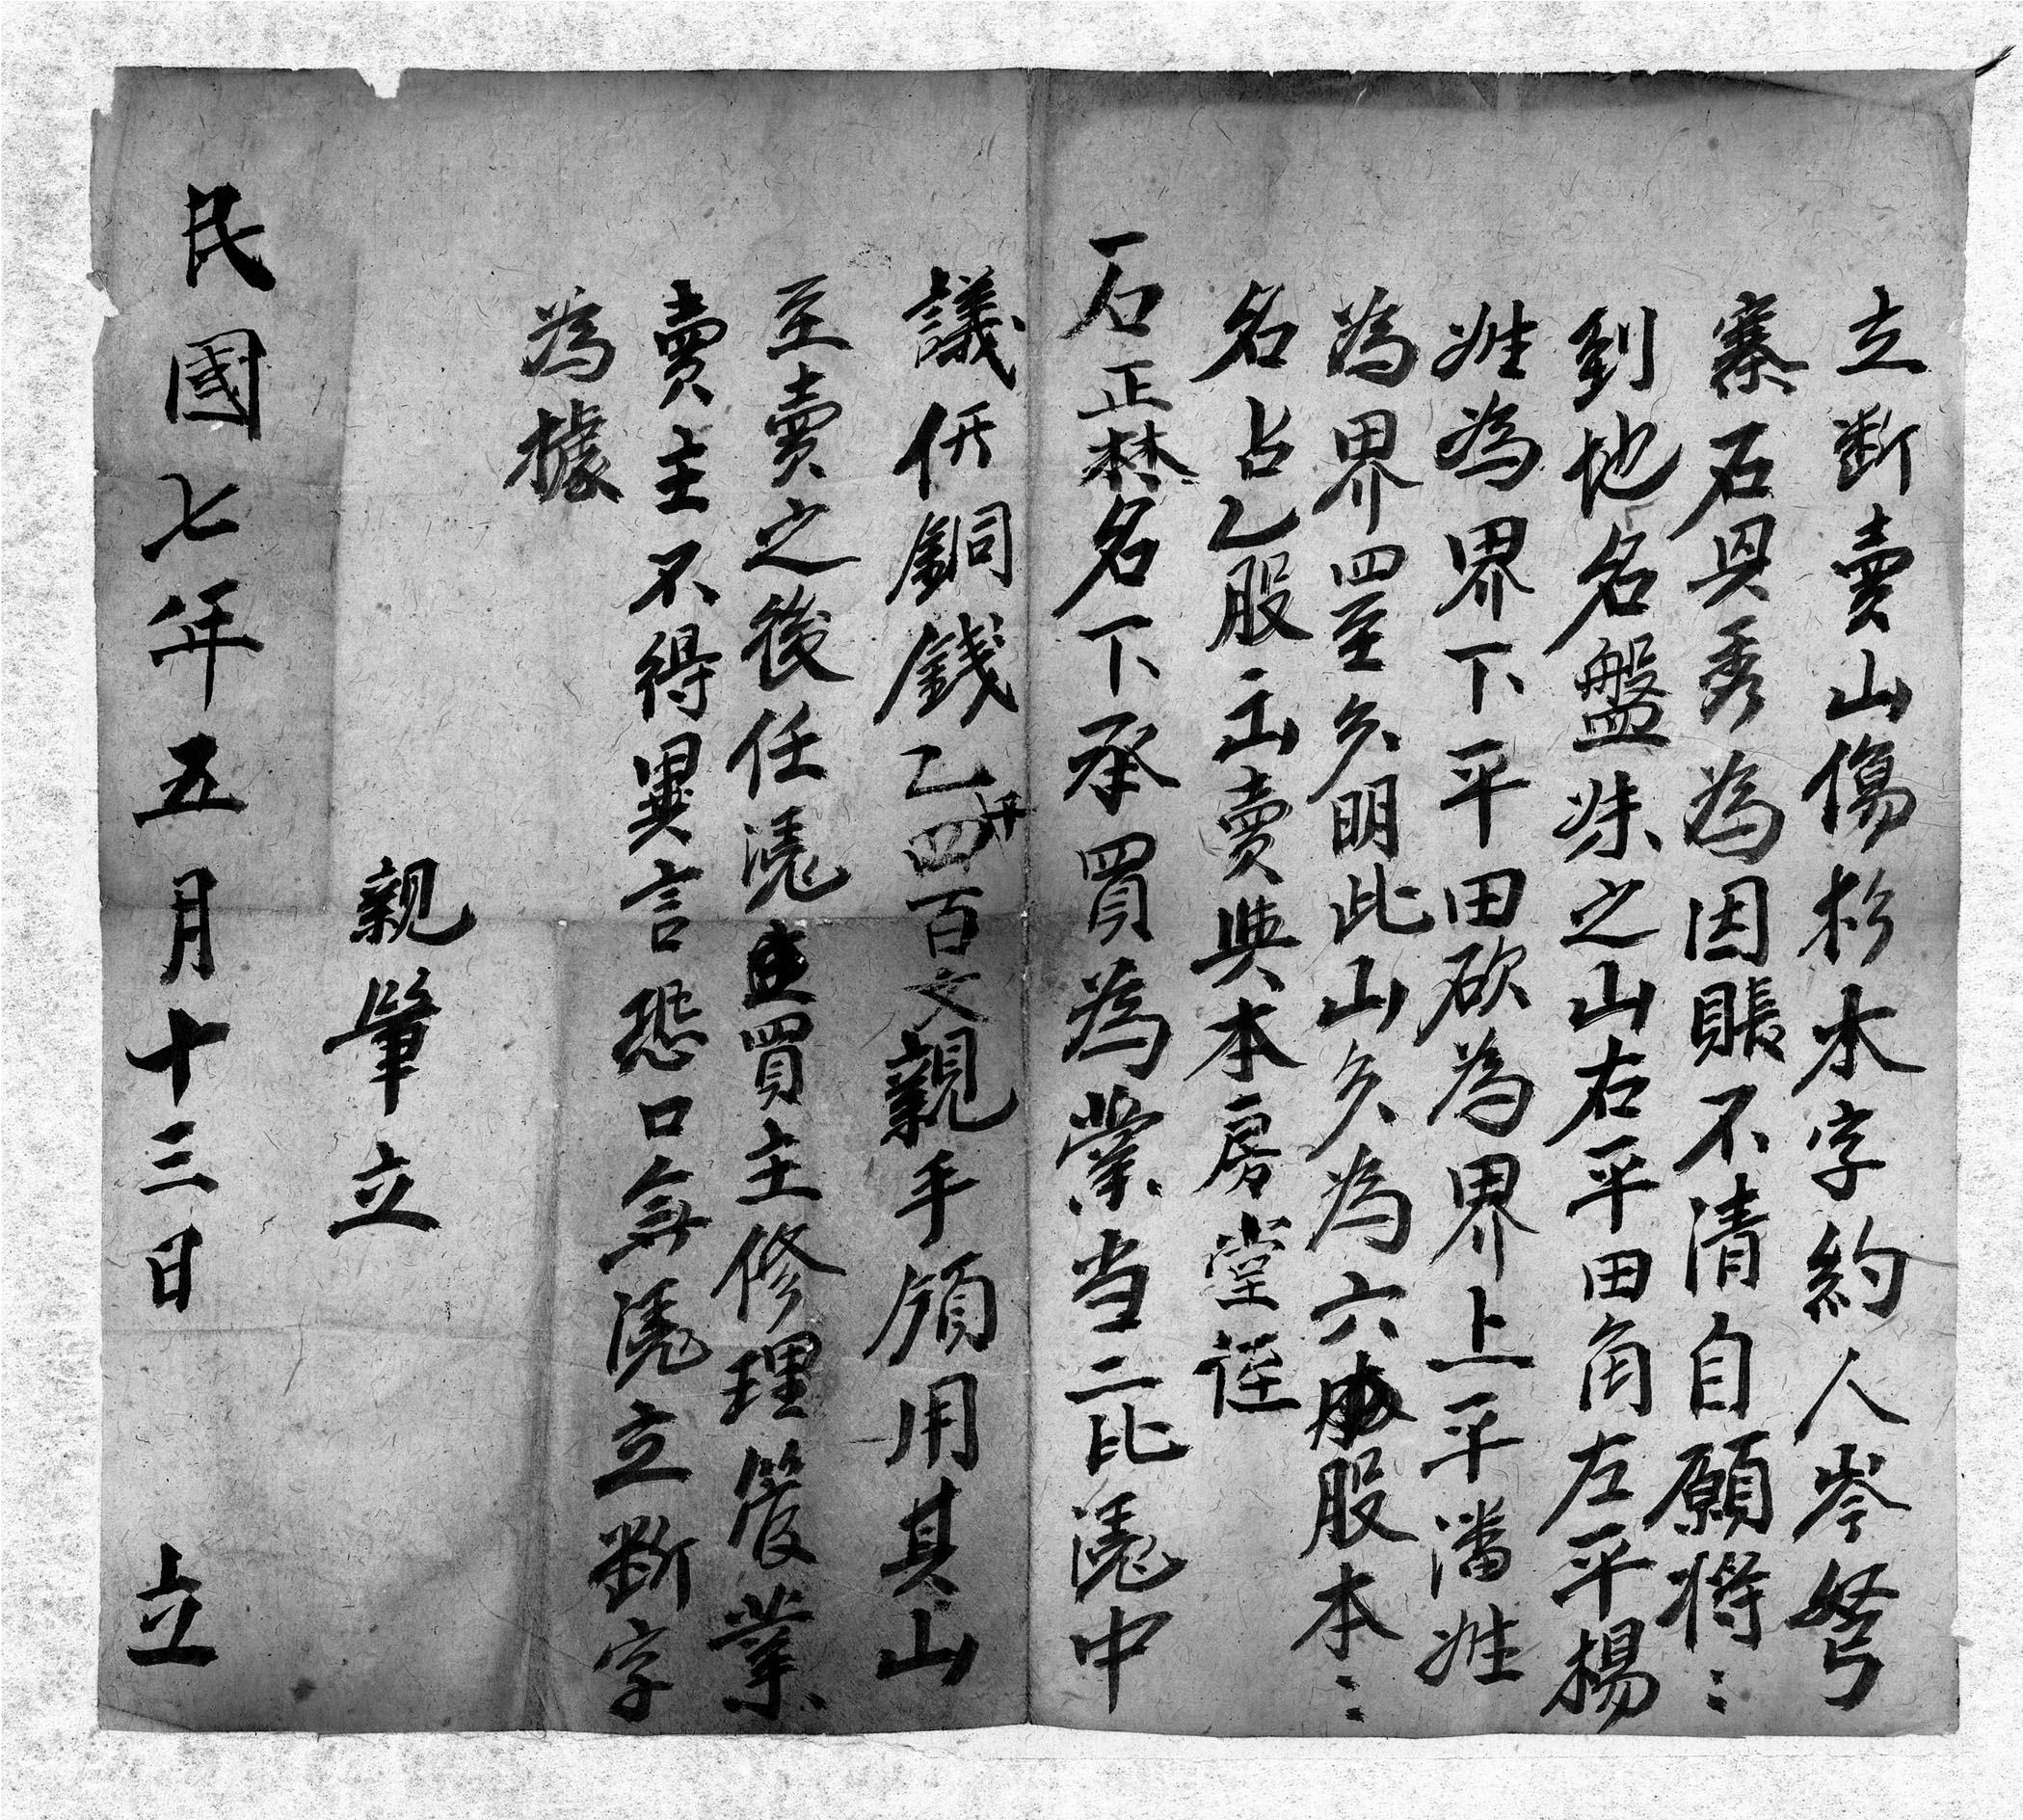 立断賣山傷杉木字約人岑努
寨石具秀為因賬不清自願将
到地名盤妹之山右平田角左平楊
姓為界下平田砍為界上平潘姓
為界四至分明此山分為六股本
名占乙股出賣與本房堂侄
石正林名下承買為業当二比凴中
議価銅錢乙千四百文親手領用其山
至賣之後任凴買主修理管業
賣主不得異言恐口無凴立断字
為據
親筆立
民國七年五月十三日 立